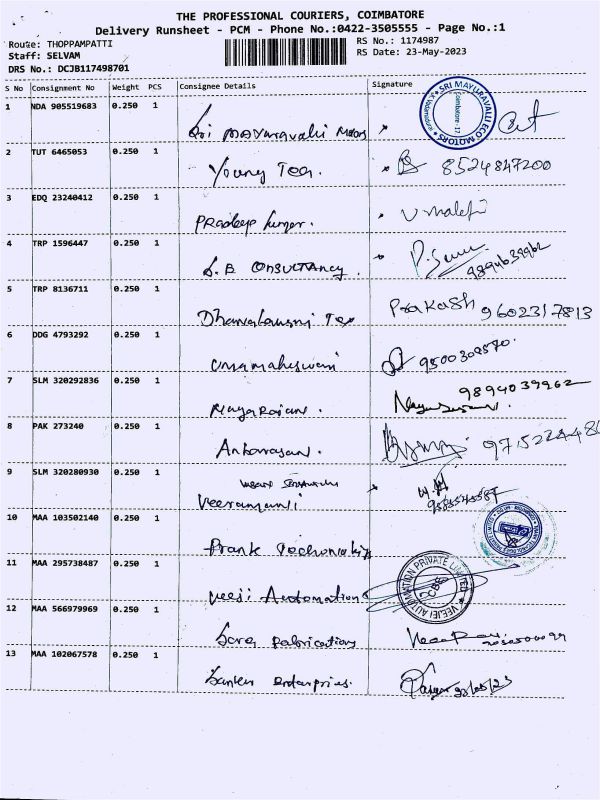 THE PROFESSIONAL COURIERS, COIMBATORE
Delivery Runsheet - PCM - Phone No.:0422-3505555 - Page No.:1
Route: THOPPAMPATTI RS No.: 1174987
Staff: SELVAM RS Date: 23-May-2023
DRS No.: DCJB117498701
S No Consignment No Weight PCS Consignee Details Signature
1 NDA 905519683 0.250 1
Sri Mayuravalli Motors
SRI MAYURAVALLI ECO MOTORS
Coimbatore - 17
2 TUT 6465053 0.250 1
Young Tea. 8524847200
3 EDQ 23240412 0.250 1
Pradeep kumar.
4 TRP 1596447 0.250 1
S.B Consultancy. 9894639962
5 TRP 8136711 0.250 1
Prakash 9602317813
6 DDG 4793292 0.250 1
Umamaheswari
7 SLM 320292836 0.250 1
Nagarajan. 9894039962
8 PAK 273240 0.250 1
Anbarasan.
9 SLM 320280930 0.250 1
Veeramani
10 MAA 103502140 0.250 1
11 MAA 295738487 0.250 1
Veeji Automation
VEEJEI AUTOMATION PRIVATE LIMITED
CBE
12 MAA 566979969 0.250 1
Sara fabrication
13 MAA 102067578 0.250 1
Sanken Enterprises.